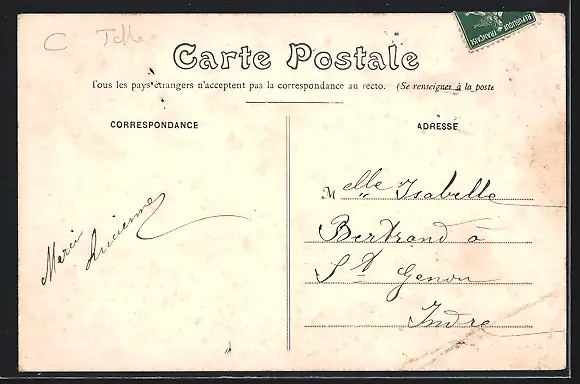 REPUBLIQUE FRANÇAISE
C
Carte Postale
Tous les pays étrangers n'acceptent pas la correspondance au recto. (Se renseigner à la poste
CORRESPONDANCE
ADRESSE
Melle Isabelle
Bertrand à
St Genou
Indre
Merci
Lucienne